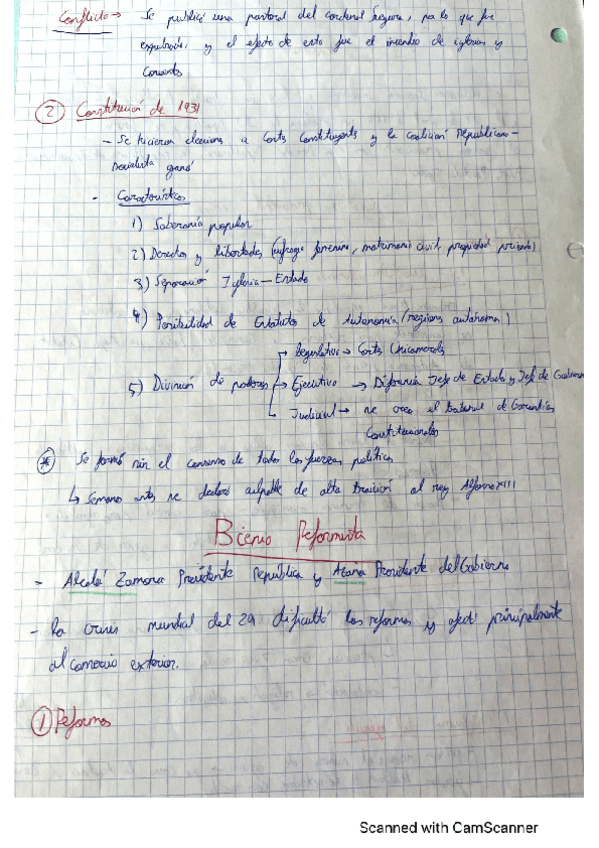 Conflicto → Se publicó una pastoral del cardenal Segura, por lo que fue
expulsado, y el efecto de esto fue el incendio de iglesias y
conventos
② Constitución de 1931
- Se hicieron elecciones a Cortes Constituyents y la coalición republicano-
socialista ganó
- Características
1) Soberanía popular
2) Derechos y libertades (sufragio femenino, matrimonio civil, propiedad privada)
3) Separación Iglesia - Estado
4) Posibilidad de Estatutos de Autonomía (regiones autónomas)
5) División de poderes → legislativo → Cortes Unicamerales
→ Ejecutivo → Diferencia Jefe de Estado y Jefe de Gobierno
→ Judicial → se crea el Tribunal de Garantías
Constitucionales
* Se formó sin el consenso de todas las fuerzas políticas
↳ Semanas antes se declaró culpable de alta traición al rey Alfonso XIII
Bienio Reformista
- Alcalá Zamora Presidente República y Azaña Presidente del Gobierno
- La crisis mundial del 29 dificultó las reformas y afectó principalmente
al comercio exterior.
① Reformas
Scanned with CamScanner